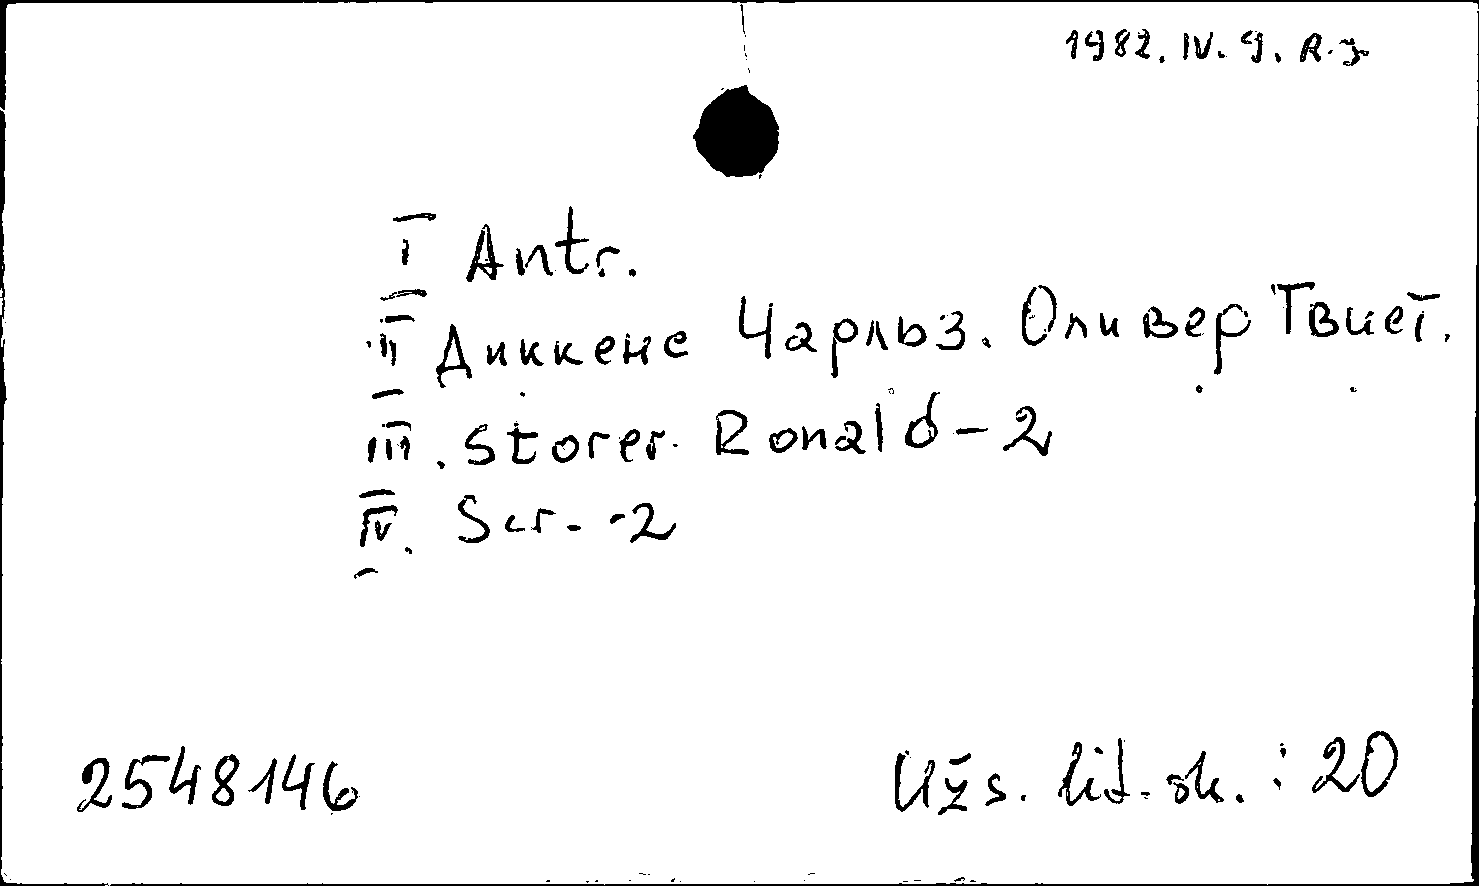 1982. IV. 9. R. J.
I Antr.
II Диккенс Чарльз. Оливер Твист.
III. Storer Ronald-2
IV. Scr. -2
2548146
Užs. lit. sk. : 20